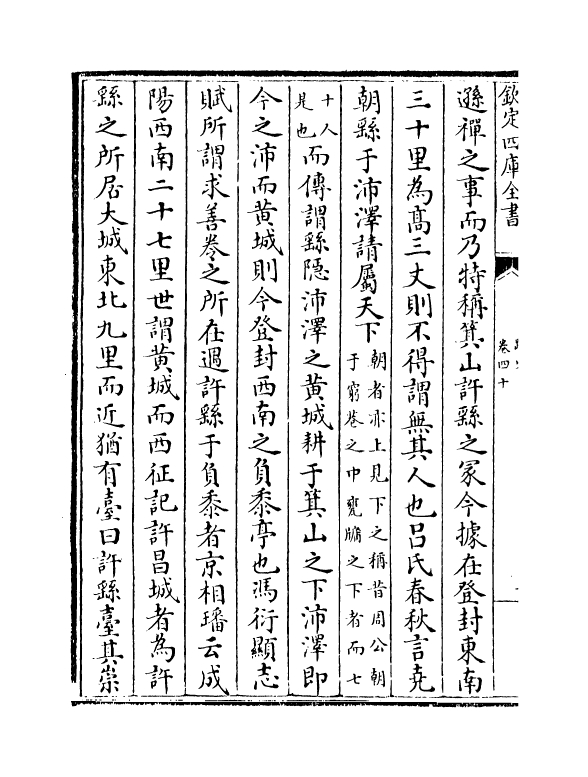 欽定四庫全書
卷四十
遜禪之事而乃特稱箕山許繇之冢今據在登封東南
三十里為髙三丈則不得謂無其人也吕氏春秋言堯
朝繇于沛澤請屬天下朝者亦上見下之稱昔周公朝
于窮巷之中甕牖之下者而七
十人
見也而傳謂繇隱沛澤之黄城耕于箕山之下沛澤即
今之沛而黄城則今登封西南之負黍亭也馮衍顯志
賦所謂求善卷之所在遇許繇于負黍者京相璠云成
陽西南二十七里世謂黄城而西征記許昌城者為許
繇之所居大城東北九里而近猶有臺曰許繇臺其崇